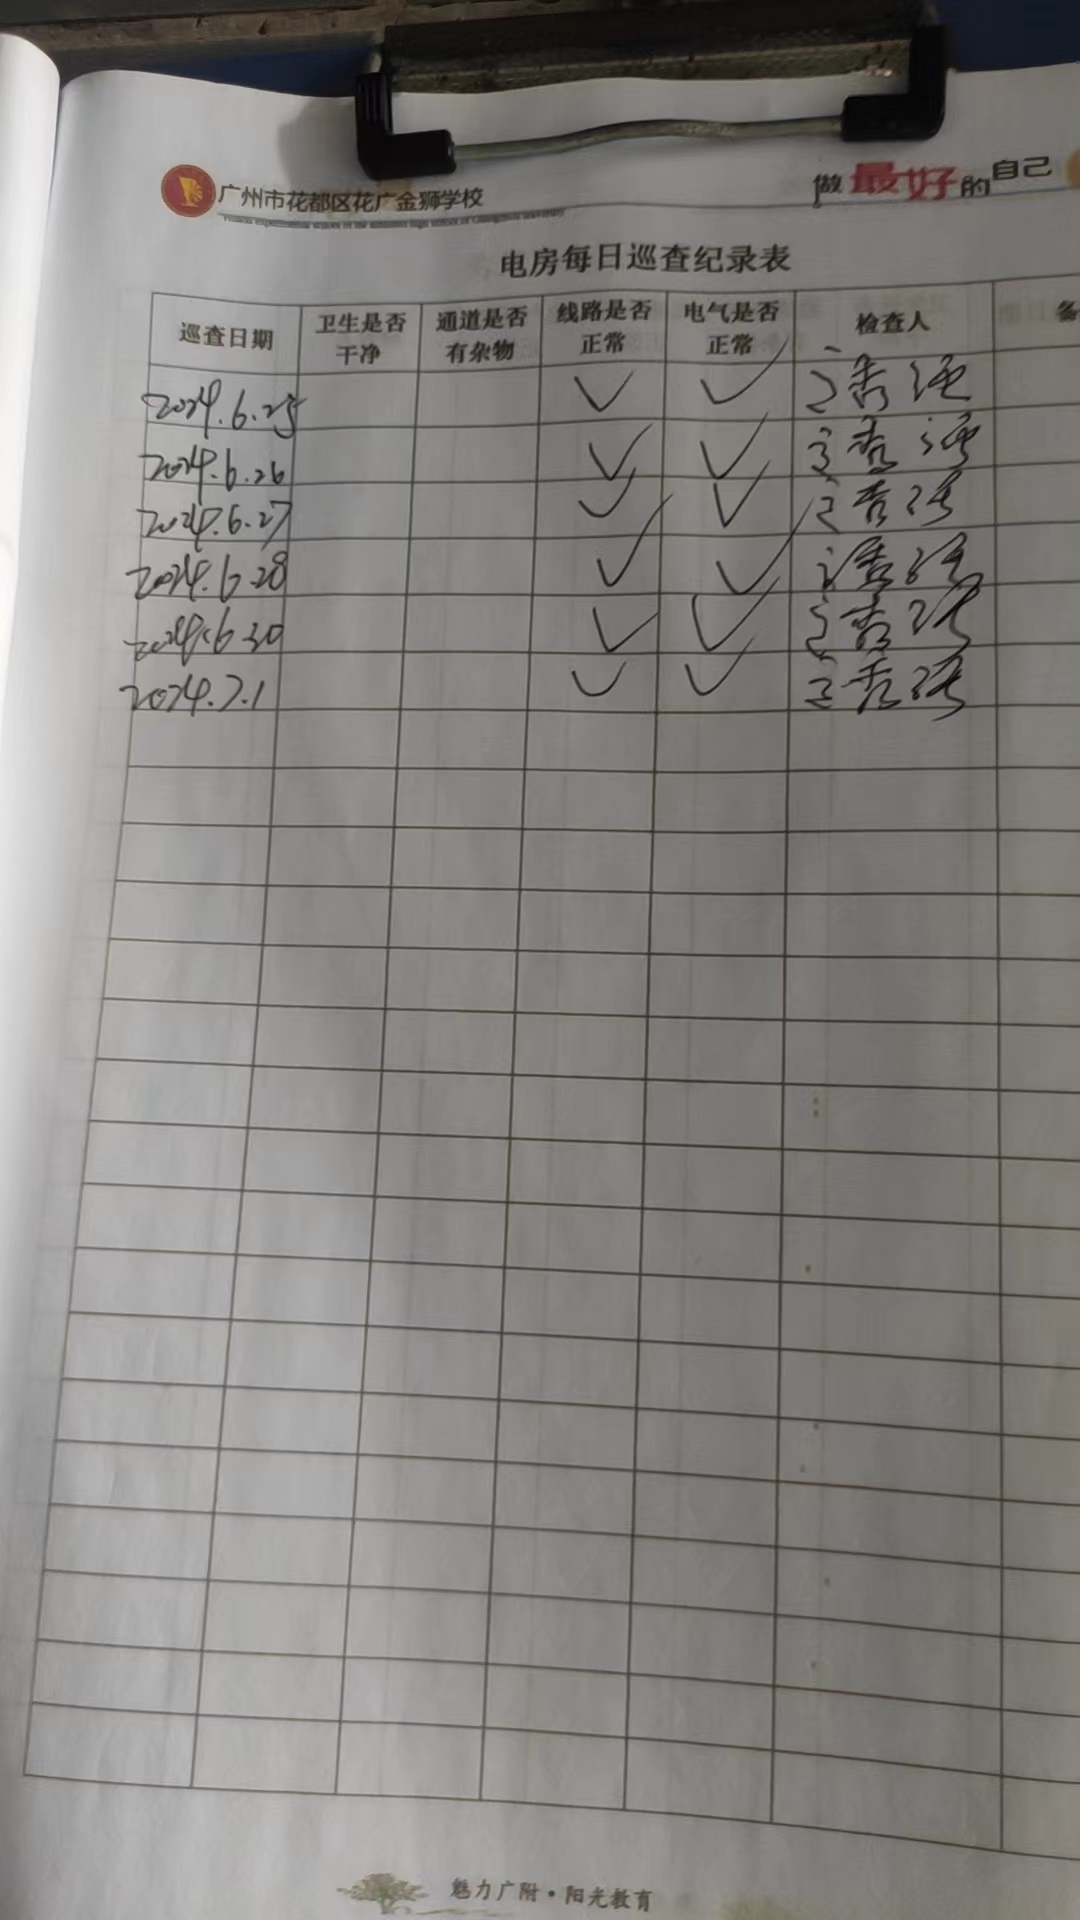 广州市花都区花广金狮学校
做最好的自己
电房每日巡查纪录表
巡查日期 卫生是否干净 通道是否有杂物 线路是否正常 电气是否正常 检查人 备
2024.6.25 ✓ ✓
2024.6.26 ✓ ✓
2024.6.27 ✓ ✓
2024.6.28 ✓ ✓
2024.6.30 ✓ ✓
2024.7.1 ✓ ✓
魅力广附·阳光教育